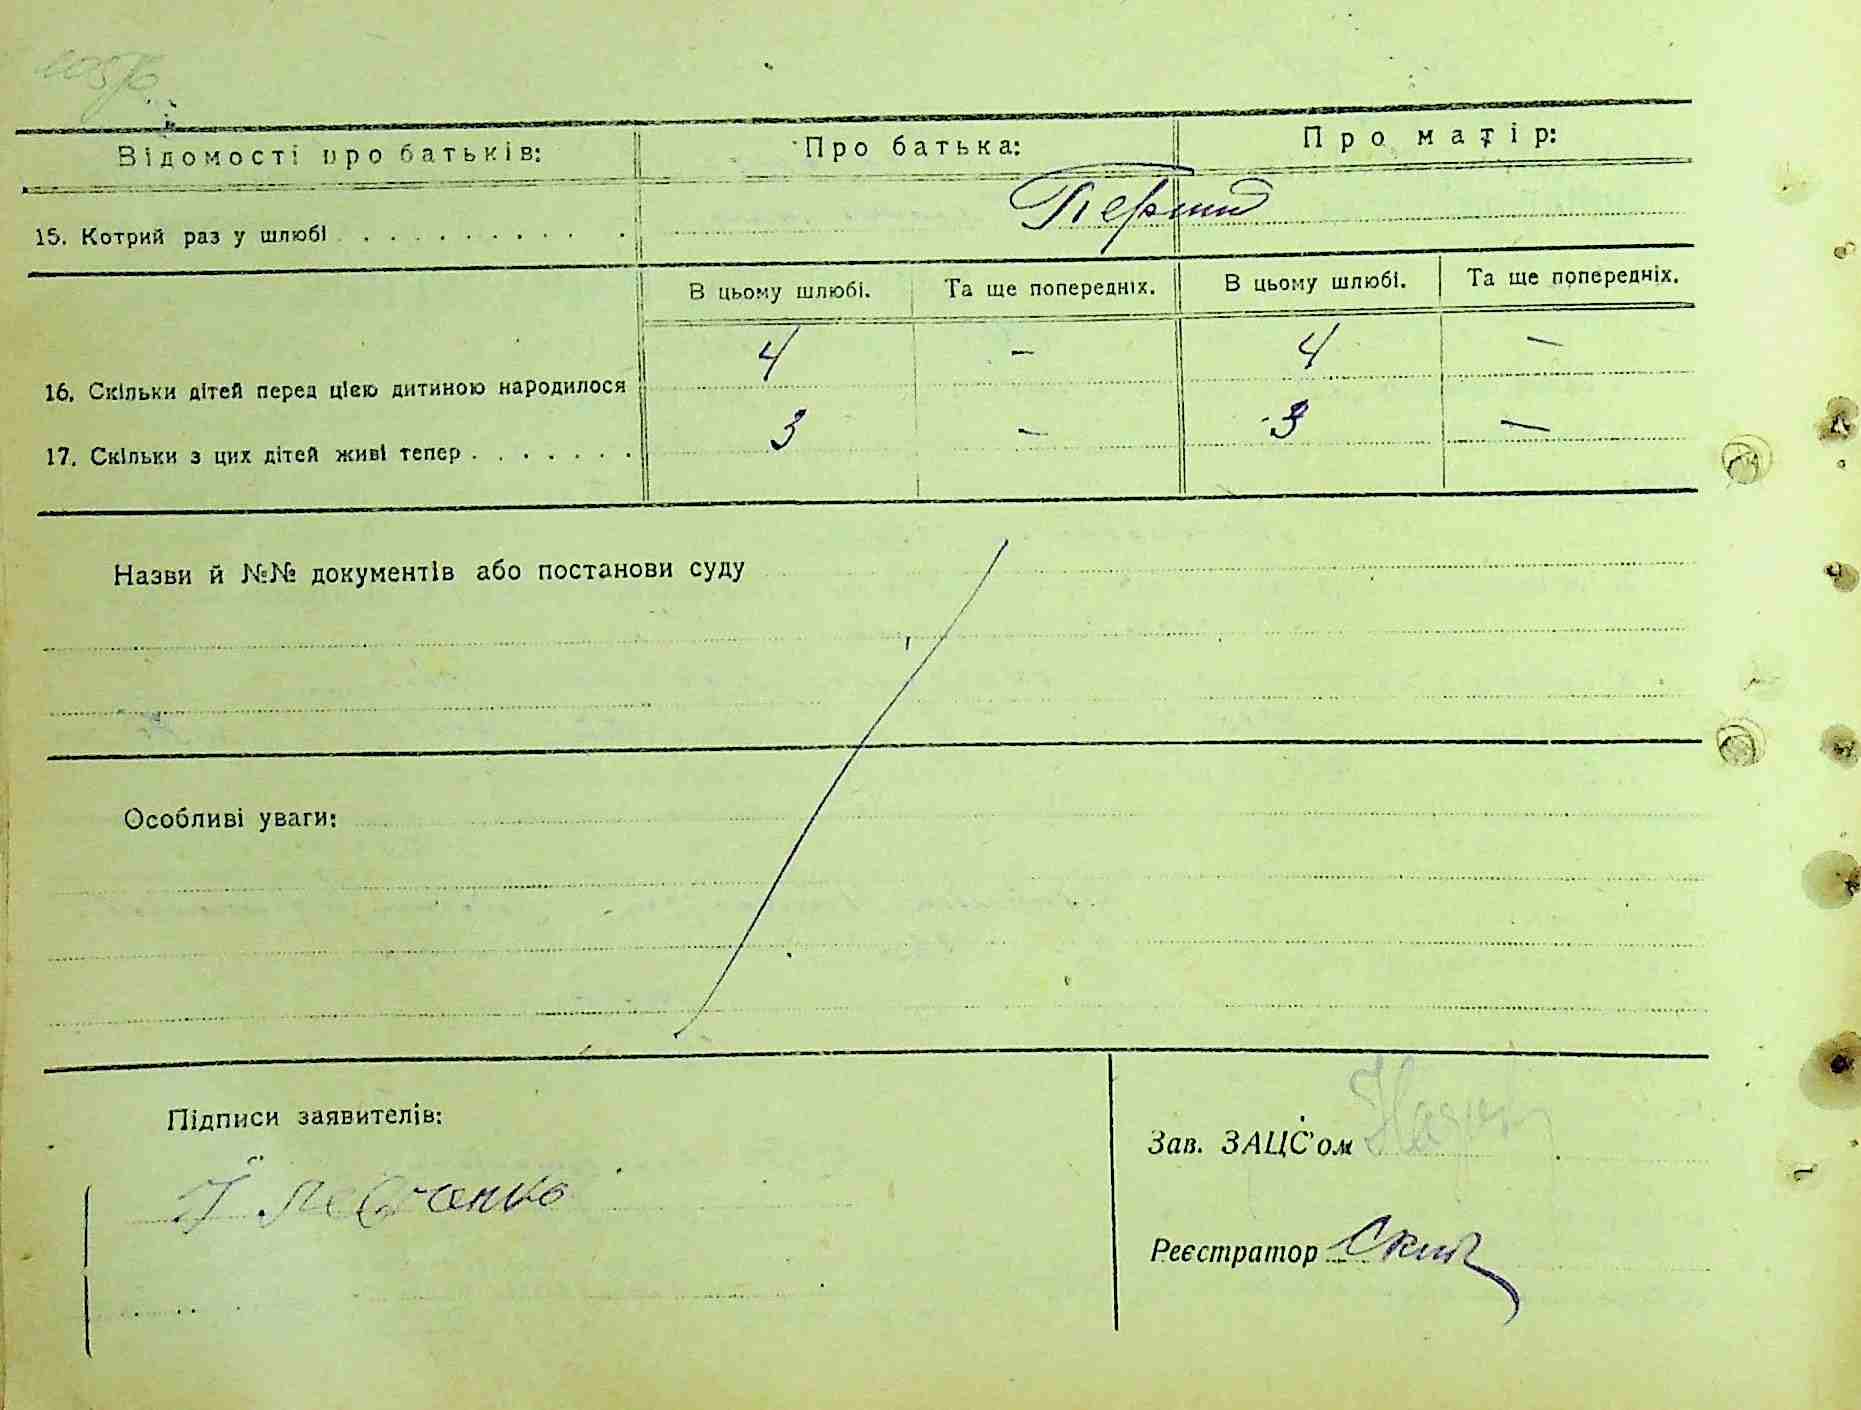 Відомості про батьків:
Про батька:
Про матір:
15. Котрий раз у шлюбі . . . . . . . . . . . .
Перший
В цьому шлюбі.
Та ще попередніх.
В цьому шлюбі.
Та ще попередніх.
16. Скільки дітей перед цією дитиною народилося
4 – 4 –
17. Скільки з цих дітей живі тепер . . . . . . .
3 – 3 –
Назви й №№ документів або постанови суду
Особливі уваги:
Підписи заявителів:
Зав. ЗАЦС'ом
Реєстратор